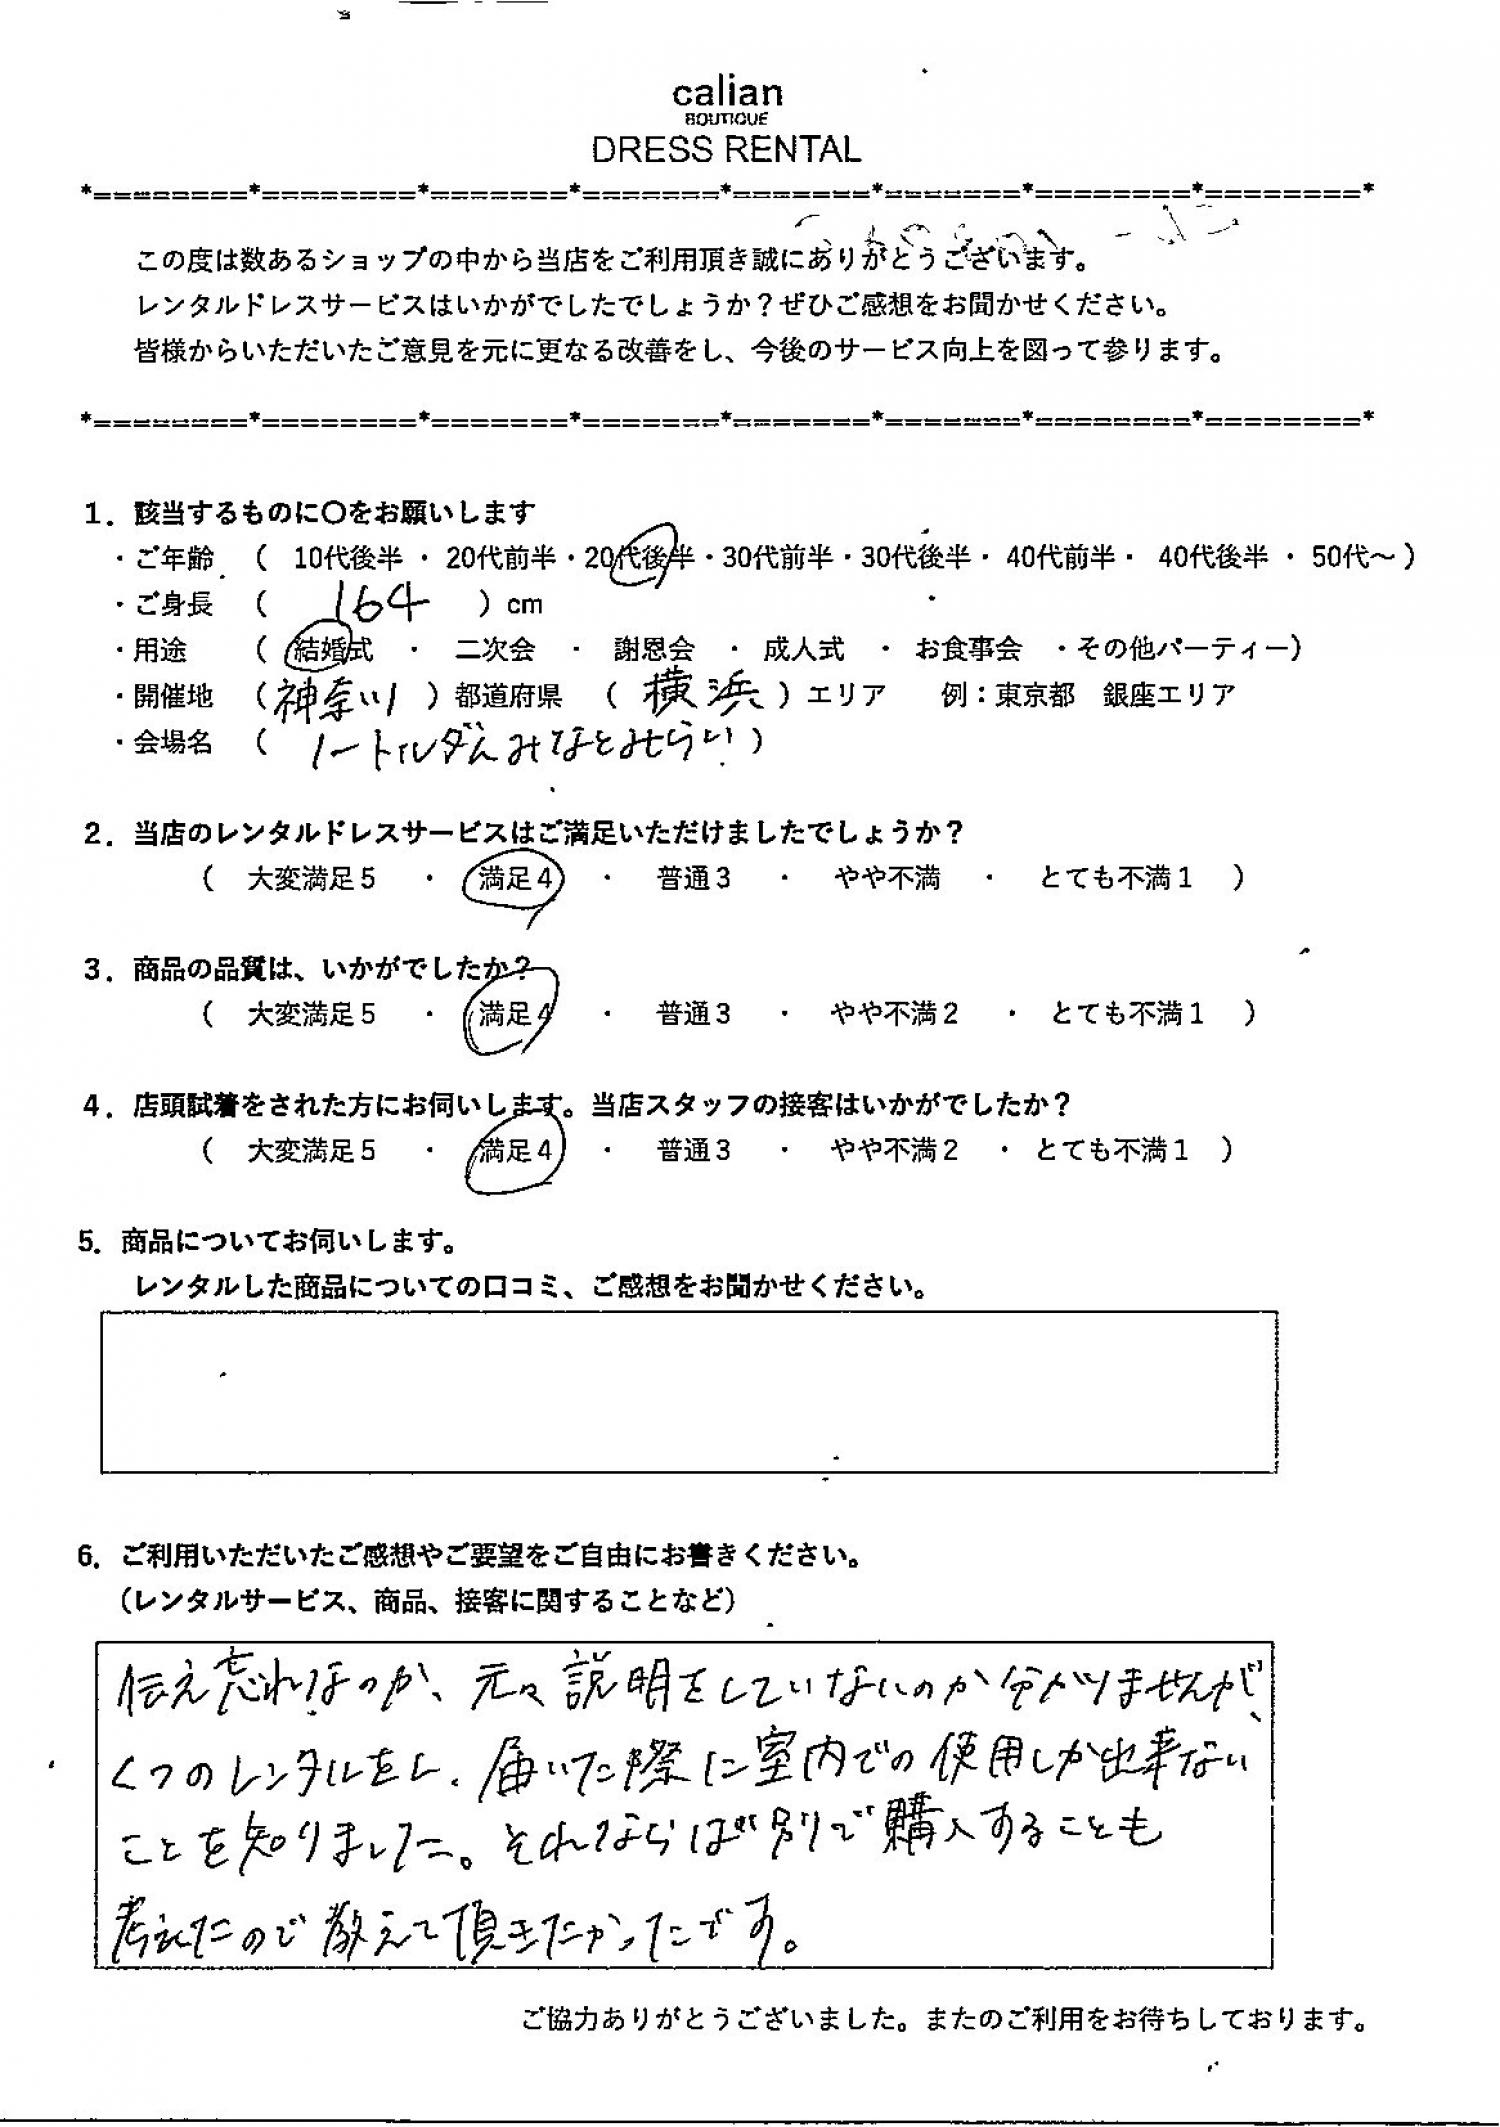 calian
BOUTIQUE
DRESS RENTAL
*========*========*=======*=======*=======*=======*========*========*
この度は数あるショップの中から当店をご利用頂き誠にありがとうございます。
レンタルドレスサービスはいかがでしたでしょうか？ぜひご感想をお聞かせください。
皆様からいただいたご意見を元に更なる改善をし、今後のサービス向上を図って参ります。
*========*========*=======*=======*=======*=======*========*========*
1．該当するものに〇をお願いします
・ご年齢 （ 10代後半・20代前半・20代後半・30代前半・30代後半・40代前半・40代後半・50代～）
・ご身長 （ 164 ）cm
・用途 （ 結婚式 ・ 二次会 ・ 謝恩会 ・ 成人式 ・ お食事会 ・その他パーティー）
・開催地 （神奈川）都道府県 （ 横浜 ）エリア 例：東京都 銀座エリア
・会場名 （ ノートルダムみなとみらい ）
2．当店のレンタルドレスサービスはご満足いただけましたでしょうか？
（ 大変満足5 ・ 満足4 ・ 普通3 ・ やや不満 ・ とても不満1 ）
3．商品の品質は、いかがでしたか？
（ 大変満足5 ・ 満足4 ・ 普通3 ・ やや不満2 ・ とても不満1 ）
4．店頭試着をされた方にお伺いします。当店スタッフの接客はいかがでしたか？
（ 大変満足5 ・ 満足4 ・ 普通3 ・ やや不満2 ・ とても不満1 ）
5．商品についてお伺いします。
レンタルした商品についての口コミ、ご感想をお聞かせください。
6．ご利用いただいたご感想やご要望をご自由にお書きください。
（レンタルサービス、商品、接客に関することなど）
伝え忘れなのか、元々説明をしていないのか分かりませんが、
くつのレンタルをし、届いた際に室内での使用しか出来ない
ことを知りました。それならば別で購入することも
考えたので教えて頂きたかったです。
ご協力ありがとうございました。またのご利用をお待ちしております。